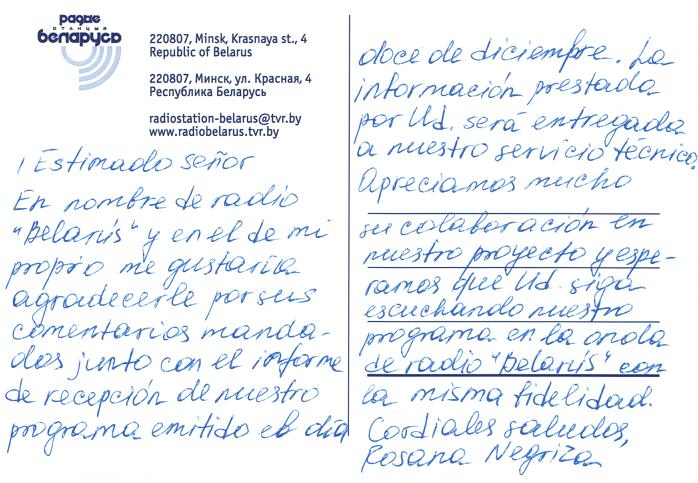 радыё
СТАНЦЫЯ
беларусь
220807, Minsk, Krasnaya st., 4
Republic of Belarus
220807, Минск, ул. Красная, 4
Республика Беларусь
radiostation-belarus@tvr.by
www.radiobelarus.tvr.by
¡ Estimado señor
En nombre de radio
"Belarús" y en el de mi
propio me gustaría
agradecerle por sus
comentarios manda-
dos junto con el informe
de recepción de nuestro
programa emitido el día
doce de diciembre. La
información prestada
por Ud. será entregada
a nuestro servicio técnico.
Apreciamos mucho
su colaboración en
nuestro proyecto y espe-
ramos que Ud. siga
escuchando nuestro
programa en la onda
de radio "Belarús" con
la misma fidelidad.
Cordiales saludos,
Rosana Negriza